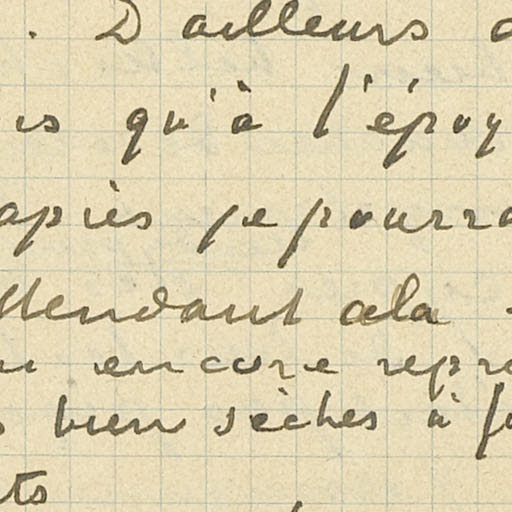 . D'ailleurs
qu'à l'époq
après je pourra
attendant cela
encore repr
bien sèches à
ts